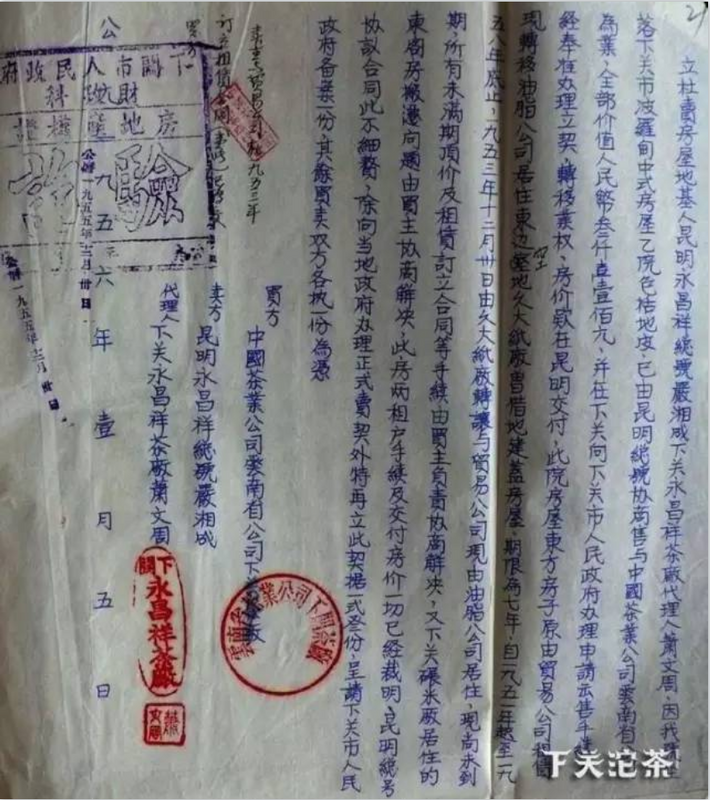 立杜賣房屋地基人昆明永昌祥總號嚴湘成下关永昌祥茶廠代理人蕭文周,因我
落下关市波羅甸中式房屋乙院包括地皮,已由昆明總號协商售与中國茶業公司雲南省
為業,全部价值人民幣叁仟壹佰元,并在下关向下关市人民政府办理申請云售手續
經奉准办理立契,轉移業权,房价欵在昆明交付,此院房屋東方房子原由貿易公司
現轉移油脂公司居住東边空地久大紙廠曾借地建蓋房屋,期限為七年,自一九五一年起至一九
五八年底止,一九五三年十二月卅日由久大紙廠轉讓与貿易公司現由油脂公司居住,現尚未到
期,所有未滿期頂价及租賃訂立合同等手續由買主負責协商解决,又下关碾米廠居住的
東廂房搬遷问題由買主协商解决,此房两租户手續及交付房价一切已經裁明,昆明總号
协議合同此不細贅,除向当地政府办理正式賣契外特再立此契據一式叁份,呈請下关市人民
政府备案一份其餘買卖双方各执一份為憑
買方
中國茶業公司雲南省公司下关茶廠
卖方
昆明永昌祥總號嚴湘成
代理人下关永昌祥茶廠蕭文周
公 一九五六年壹月五日
下關市人民政府
財政科
房地產
驗訖
公曆一九五五年十二月卅日
公曆一九五五年十二月卅日
雲南省茶業公司下關茶廠
下關
永昌祥茶廠
蕭文周
下关沱茶